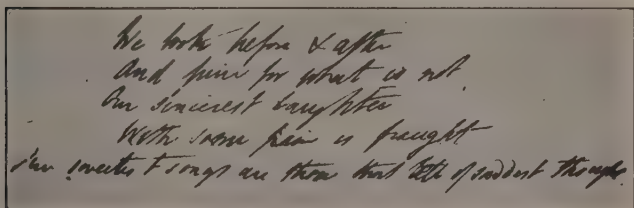 We look before & after
And pine for what is not
Our sincerest laughter
With some pain is fraught
Our sweetest songs are those that tell of saddest thought.